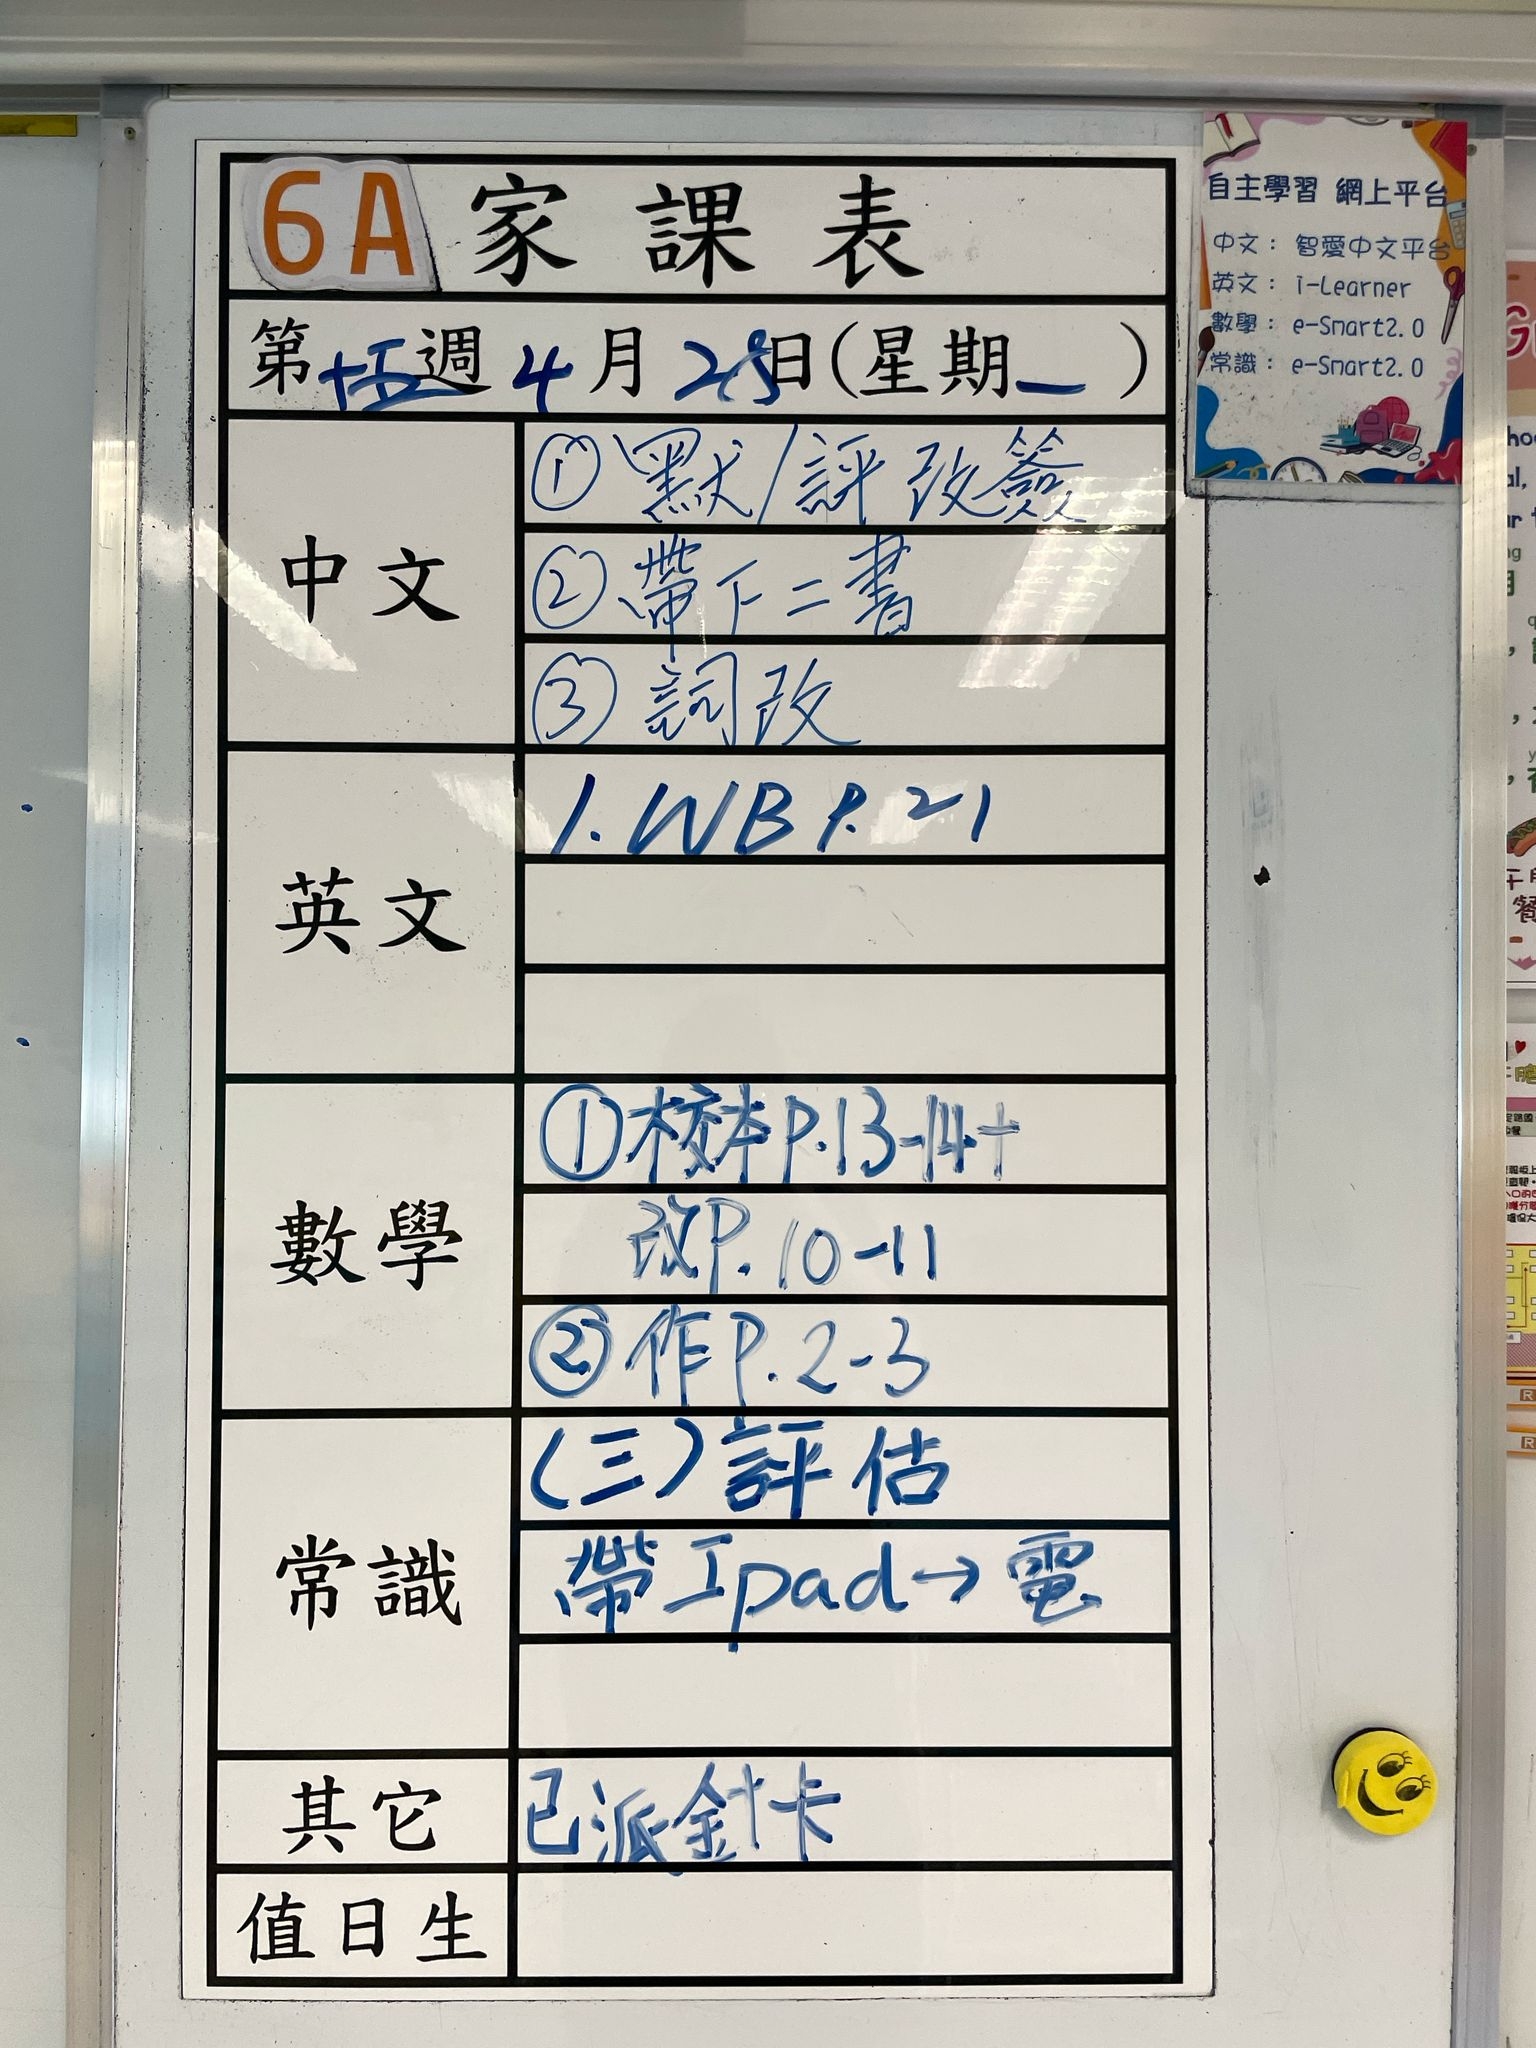 6A 家課表
第十五週 4月28日(星期一)
中文
①默/評改簽
②帶下二書
③詞改
英文
1. WB P.21
數學
①校本P.13-14+
改P.10-11
②作P.2-3
常識
(三)評估
帶Ipad→電
其它
已派針卡
值日生
自主學習 網上平台
中文: 智愛中文平台
英文: i-Learner
數學: e-Smart2.0
常識: e-Smart2.0